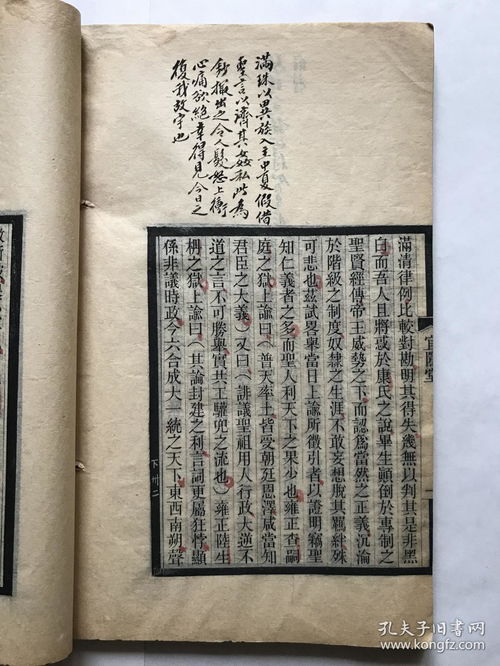 滿珠以異族入主中夏假借
聖言以濟其姦私此為
鈔撮出之令人髮怒上衝
心痛欲絕幸得見今日之
復我故宇也
滿清律例比較對勘明其得失幾無以判其是非黑
白而吾人且將惑於康氏之說畢生顛倒於專制之
聖賢經傳帝王威勢之下而認爲當然之正義沉淪
於階級之制度奴隸之生涯不敢妄想脫其羈絆殊
可悲也茲試畧舉當日上諭所徵引者以證明竊聖
知仁義者之多而聖人利天下之果少也雍正查嗣
庭之獄上諭曰（普天率土皆受朝庭恩澤咸當知
君臣之大義）又曰（誹議聖祖用人行政大逆不
道之言不可勝舉實共工驩兜之流也）雍正陸生
枬之獄上諭曰（其論封建之利言詞更屬狂悖顯
係非議時政今六合成大一統之天下東西南朔聲
下卅二
孔夫子旧书网
www.kongfz.com